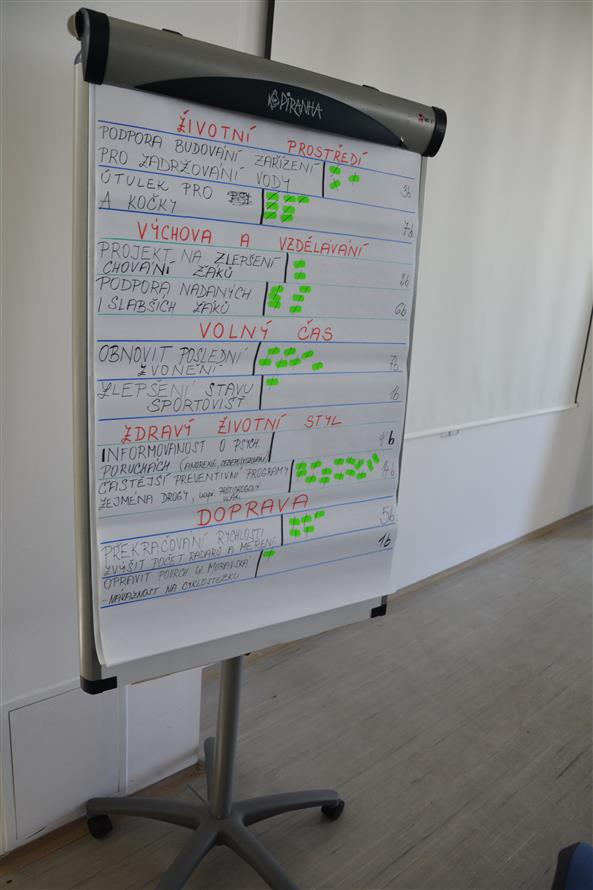 PIRANHA
ŽIVOTNÍ PROSTŘEDÍ
PODPORA BUDOVÁNÍ ZAŘÍZENÍ
PRO ZADRŽOVÁNÍ VODY 3b
ÚTULEK PRO
A KOČKY 7b
VÝCHOVA A VZDĚLÁVÁNÍ
PROJEKT NA ZLEPŠENÍ
CHOVÁNÍ ŽÁKŮ 2b
PODPORA NADANÝCH
I SLABŠÍCH ŽÁKŮ 6b
VOLNÝ ČAS
OBNOVIT POSLEDNÍ
ZVONĚNÍ 7b
ZLEPŠENÍ STAVU
SPORTOVIŠŤ 1b
ZDRAVÝ ŽIVOTNÍ STYL
INFORMOVANOST O PSYCH. b
PORUCHÁCH (ANOREXIE,
ČASTĚJŠÍ PREVENTIVNÍ PROGRAMY
ZEJMÉNA DROGY, PROTIDROGOVÝ
DOPRAVA
PŘEKRAČOVÁNÍ RYCHLOSTI 5b
ZVÝŠIT POČET RADARŮ A MĚŘENÍ
OPRAVIT POVRCH UL. MORAVSKÁ 1b
- NÁVAZNOST NA CYKLOSTEZKU